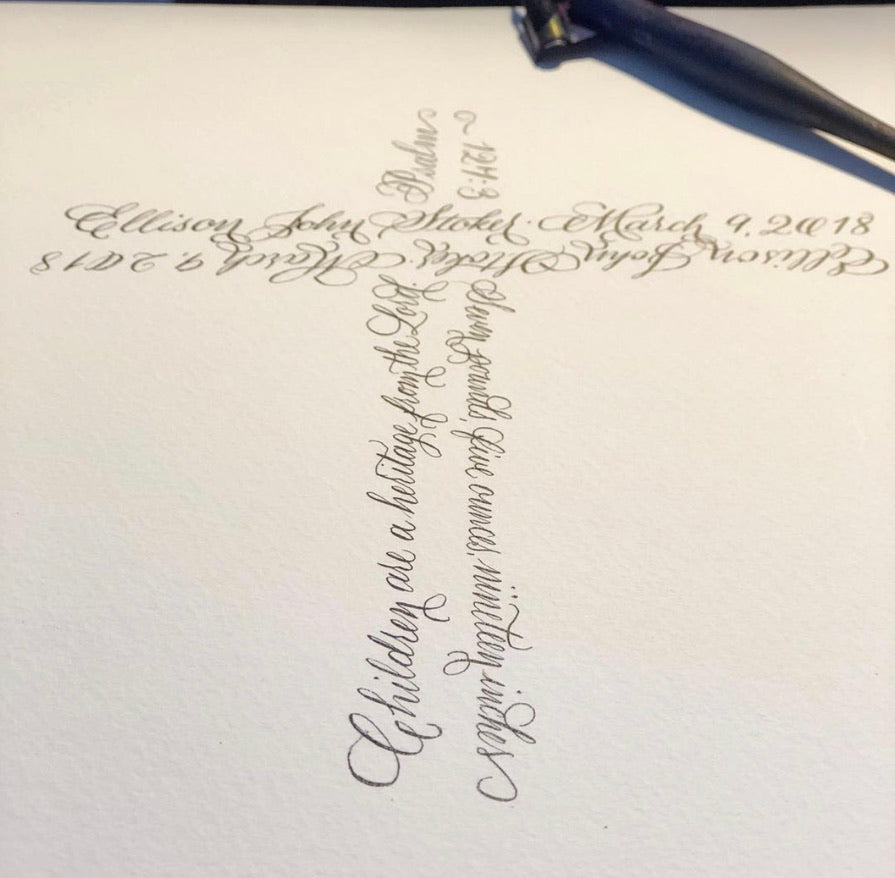 Ellison John Stokes. March 9, 2018
Ellison John Stokes. March 9, 2018
Children are a heritage from the Lord.
Psalm
127:3
Seven pounds, five ounces, nineteen inches